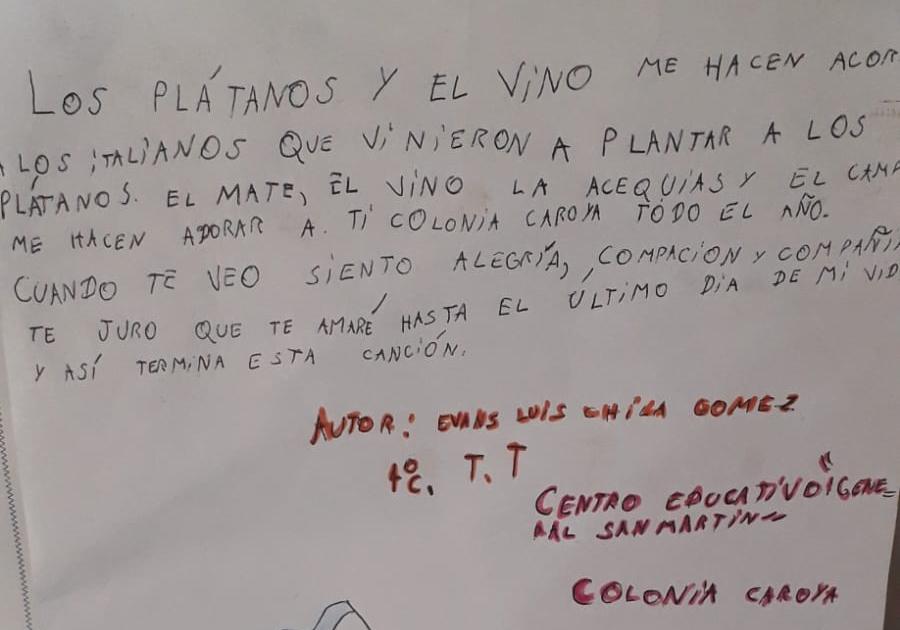 LOS PLÁTANOS Y EL ViNO ME HACEN ACOR
A LOS iTALiANOS QUE ViNiERON A PLANTAR A LOS
PLÁTANOS. EL MATE, EL ViNO LA ACEQUiAS Y EL CAMP
ME HACEN ADORAR A. Ti COLONiA CAROYA TODO EL AÑO.
CUANDO TE VEO SiENTO ALEGRÍA, COMPACiON Y COMPAÑi
TE JURO QUE TE AMARÉ HASTA EL ÚLTiMO DiA DE Mi ViD
Y ASÍ TERMiNA ESTA CANCiÓN.
AUTOR: EVANS LUiS GOMEZ
4ºC. T.T
CENTRO EDUCATiVO "GENE=
RAL SAN MARTiN
COLONiA CAROYA